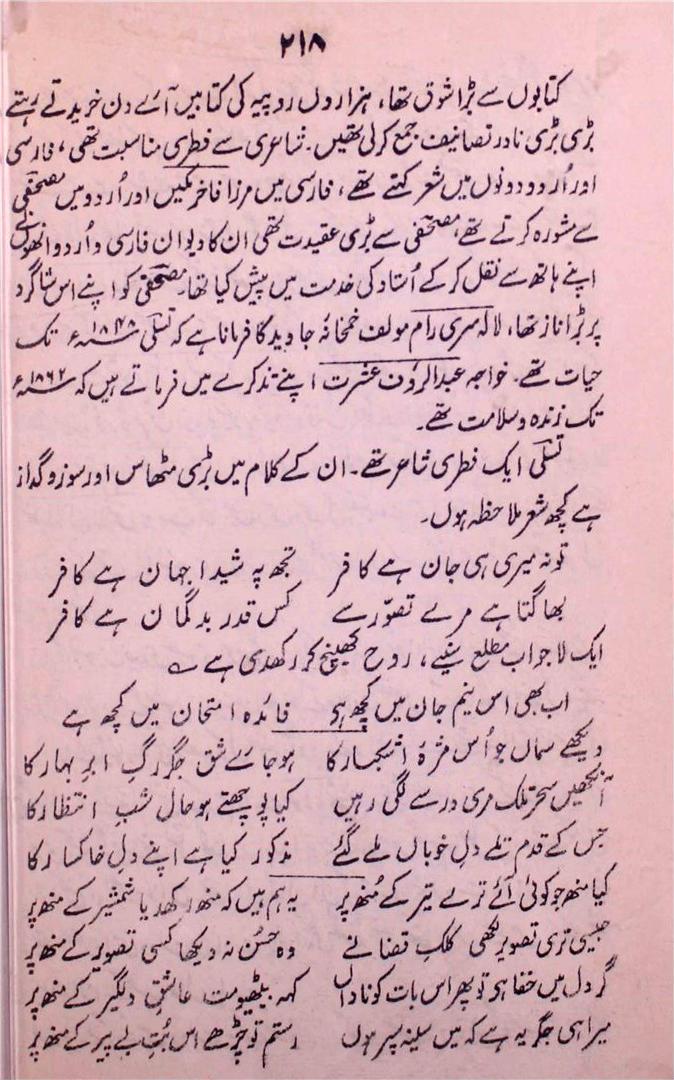 ۲۱۸
کتابوں سے بڑا شوق تھا، ہزاروں روپیہ کی کتابیں آئے دن خریدتے رہتے
بڑی بڑی نادر تصانیف جمع کرلی تھیں۔ شاعری سے فطری مناسبت تھی، فارسی
اور اُردو دونوں میں شعر کہتے تھے، فارسی میں مرزا فاخر مکیں اور اُردو میں مصحفی
سے مشورہ کرتے تھے، مصحفی سے بڑی عقیدت تھی ان کا دیوان فارسی و اُردو انھوں نے
اپنے ہاتھ سے نقل کر کے اُستاد کی خدمت میں پیش کیا تھا۔ مصحفی کو اپنے اس شاگرد
پر بڑا ناز تھا، لالہ سری رام مولف خمخانۂ جاوید کا فرمانا ہے کہ تسلی ۱۸۴۸ء تک
حیات تھے۔ خواجہ عبدالرؤف عشرت اپنے تذکرے میں فرماتے ہیں کہ ۱۸۶۲ء
تک زندہ و سلامت تھے۔
تسلی ایک فطری شاعر تھے۔ ان کے کلام میں بڑی مٹھاس اور سوز و گداز
ہے کچھ شعر ملاحظہ ہوں۔
تو نہ میری ہی جان ہے کافر تجھ پہ شیدا جہان ہے کافر
بھاگتا ہے مرے تصوّر سے کس قدر بدگمان ہے کافر
ایک لاجواب مطلع سنیے، روح کھینچ کر رکھدی ہے ؎
اب بھی اس نیم جان میں کچھ ہی فائدہ امتحان میں کچھ ہے
دیکھے سماں جو اُس مژۂ اشکبار کا ہو جائے شق جگر رگِ ابرِ بہار کا
آنکھیں سحر تلک مری در سے لگی رہیں کیا پوچھتے ہو حال شبِ انتظار کا
جس کے قدم تلے دلِ خوباں ملے گئے مذکور کیا ہے اپنے دلِ خاکسار کا
کیا منھ جو کوئی آئے ترے تیر کے مُنھ پر یہ ہم ہیں کہ منھ رکھدیا شمشیر کے منھ پر
جیسی تری تصویر لکھی کلکِ قضا نے وہ حسُن نہ دیکھا کسی تصویر کے منھ پر
گر دل میں خفا ہو تو پھر اس بات کو ناداں کہہ بیٹھیو مت عاشقِ دلگیر کے منھ پر
میرا ہی جگر یہ ہے کہ میں سینہ سپر ہوں رستم تو چڑھے اس بُتِ بے پیر کے منھ پر